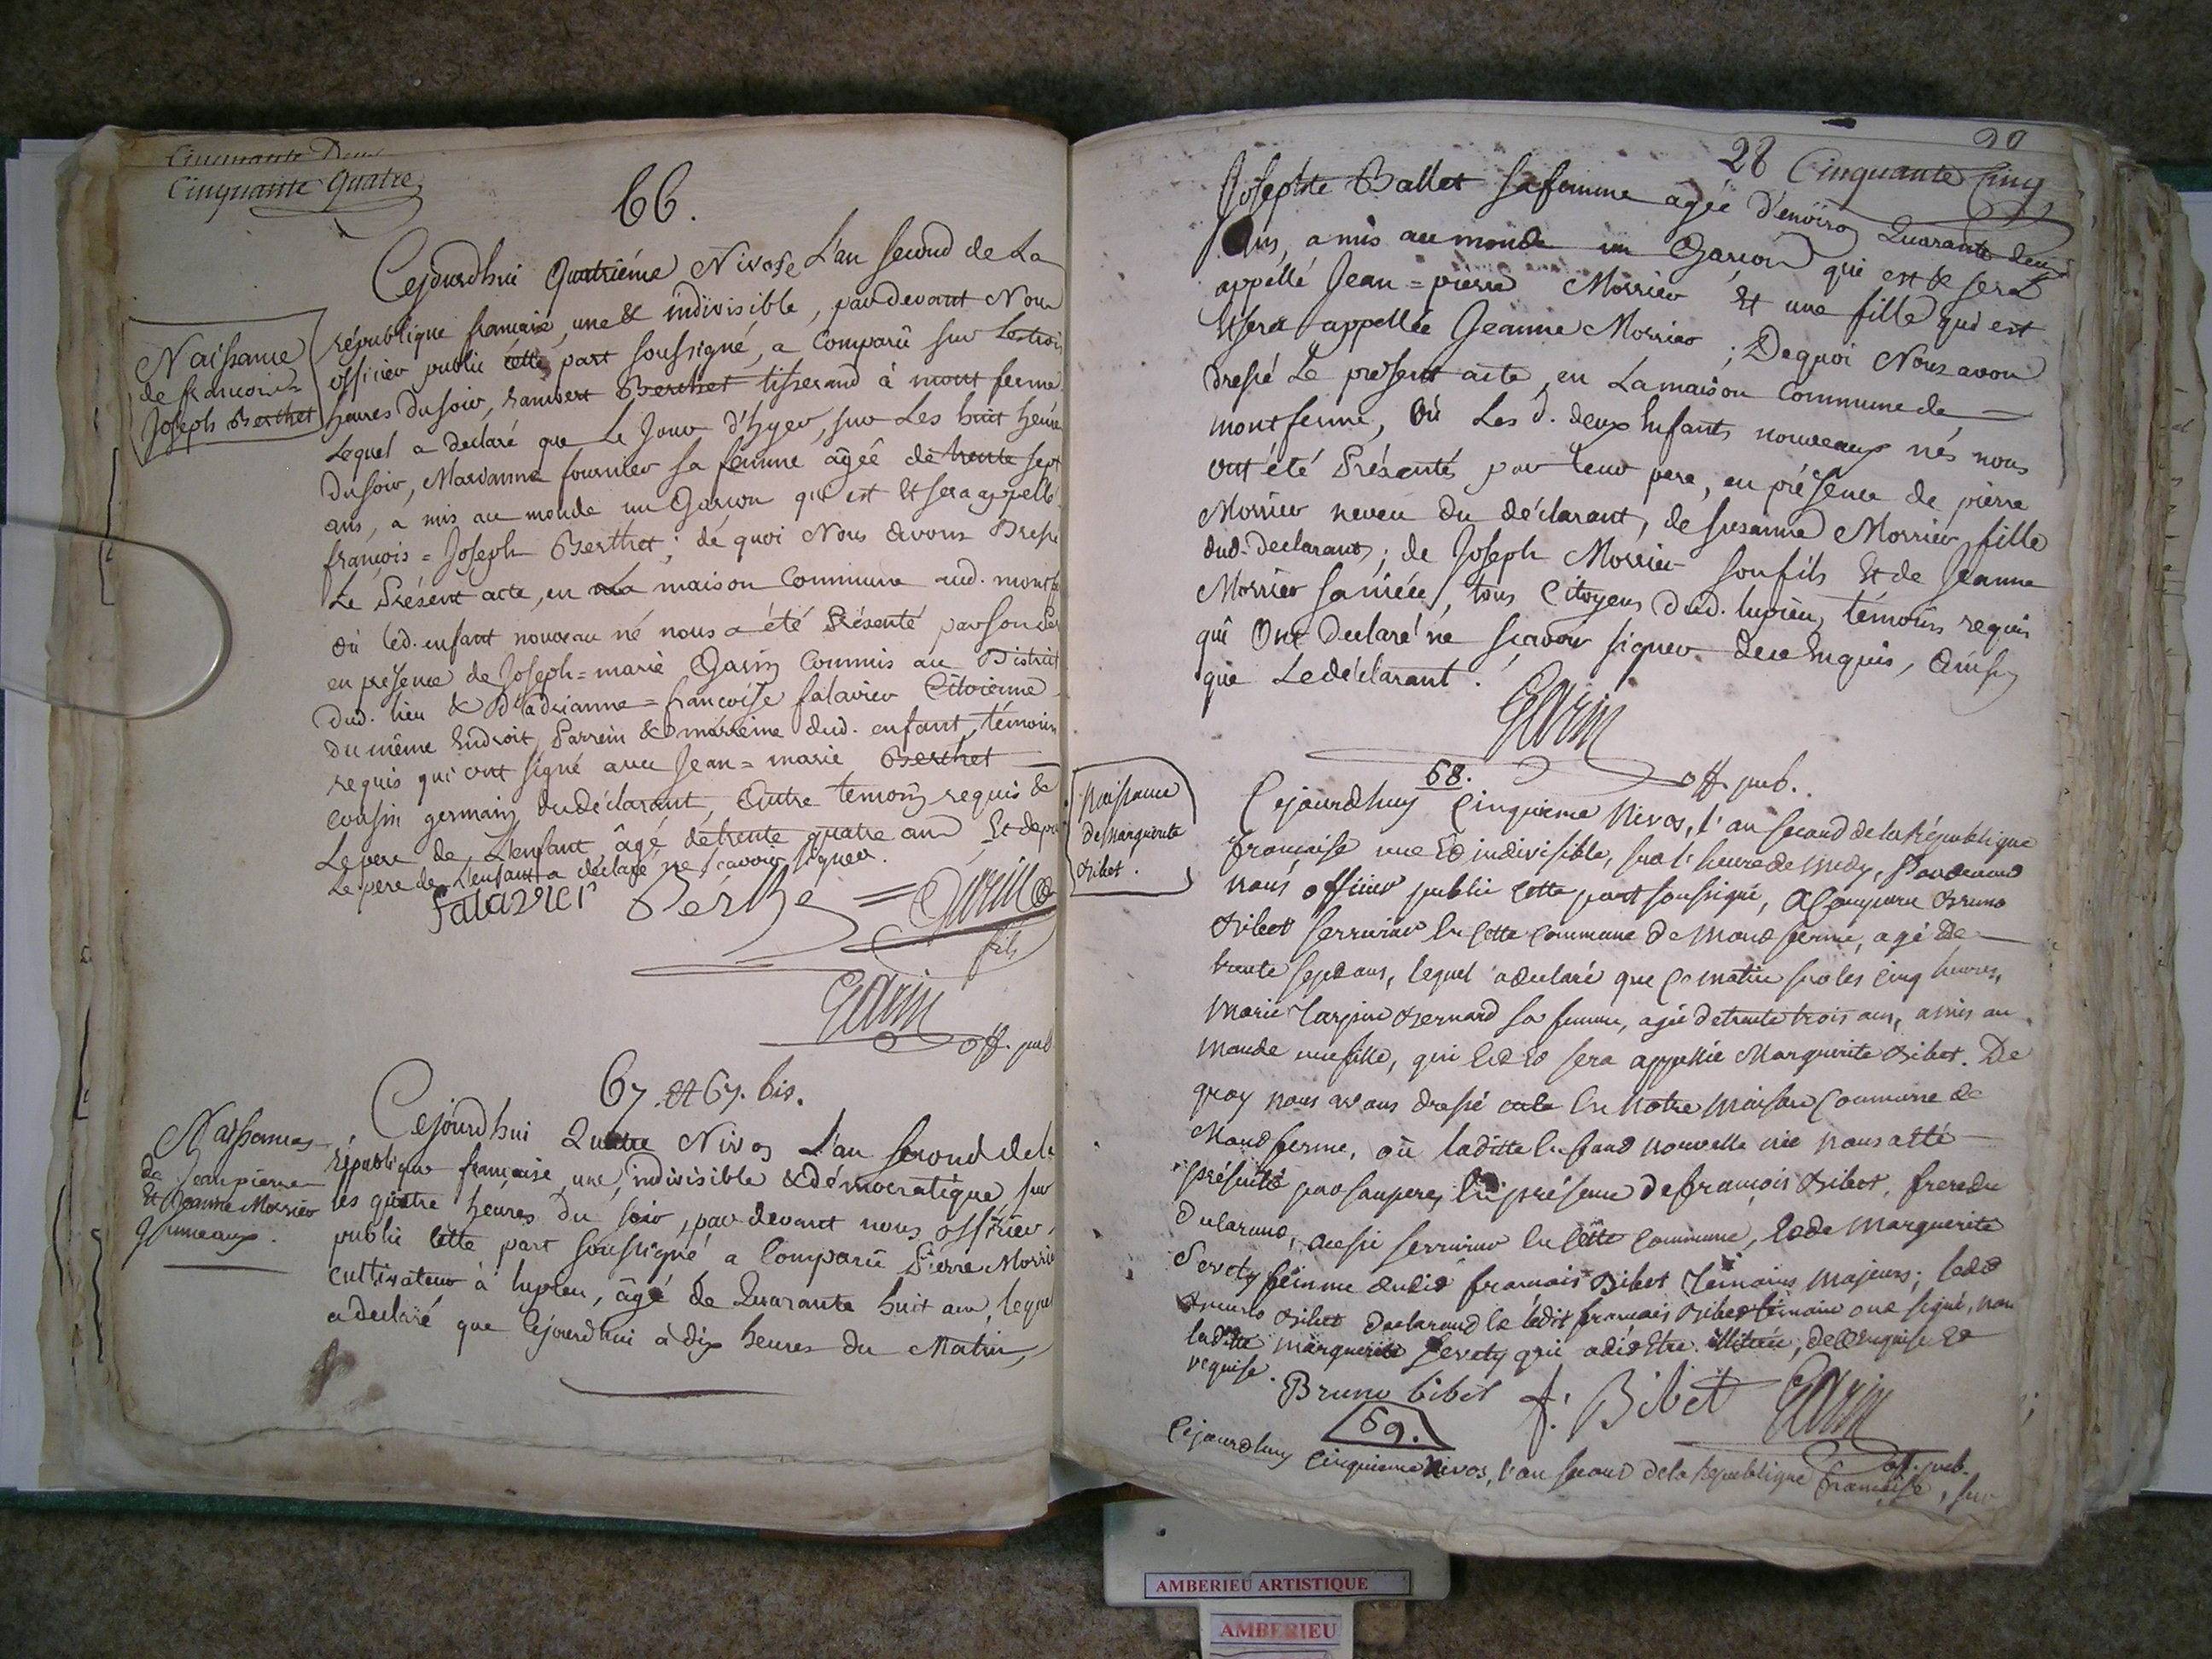 Cinquante Deux
Cinquante Quatre
66.
Cejourdhui Quatriéme Nivose L'an second de La
république francaise, une & indivisible, pardevant Nous
officier public cette part soussigné, a Comparû sur Les trois
heures Du soir, rambert Berthet tisserand à mont ferme
Lequel a declaré que Le Jour d'hyer, sur Les huit heures
Du soir, Marianne fournier sa femme âgéé de trente sept
ans, a mis au monde un Garcon qui est Et sera appellé
françois = Joseph Berthet; de quoi Nous avons Dressé
Le Présent acte, en La maison Commune aud. montf
Où led. enfant nouveau né nous a été Présenté par son Per
en présence de Joseph = marie Garin Commis au District
Dud. lieu & D'adrianne = francoise falavier Citoienne
Du même Endroit, Parrein & marreine dud. enfant, témoins
requis qui ont signé avec Jean = marie Berthet
cousin germain du déclarant, Autre temoin requis &
Le pere de L'enfant âgé de trente quatre ans Et de
Le pere de L'enfant a déclaré ne scavoir signer.
Naissance
de francois
Joseph Berthet
falavier Berthe Garin
fils
Garin
off. pub
67. et 67. bis.
Naissances
de Jean pierre
Et Jeanne Morrier
Jumeaux.
Cejourd'hui Quatre Nivos L'an second de la
république française, une, indivisible & démocratique, sur
les quatre heures Du soir, par devant nous officier
public cette part soussigné a Comparû Pierre Morrier
cultivateur à lupieu, âgé de Quarante huit ans, lequel
a declaré que Cejourdhui à dix heures du Matin,
28 Cinquante Cinq
Josephte Ballet sa femme agée D'environ Quarante deux
Ans, a mis au monde un Garcon qui est & sera
appellé Jean = pierre Morrier Et une fille qui est
Et sera appellée Jeanne Morrier; De quoi Nous avons
dressé Le présent acte, en La maison Commune de
montferme, Où Les d. deux Enfants nouveaux nés nous
ont été Présentés par leur pere, en présence de pierre
Morrier neveu du déclarant, de susanne Morrier fille
dud. Declarant; de Joseph Morrier son fils Et de Jeanne
Morrier sa niéce, tous Citoyens Dud. lupieu, témoins requis
qui Ont Declaré ne scavoir signer de ce Enquis, Ainsy
que Le déclarant.
Garin
off. pub.
68.
Naissance
de Marguerite
Bibet.
Cejourdhuy Cinquieme Nivos, l'an second de la République
francaise une Et indivisible, sur l'heure de midy, Pardevant
nous officier public cette part soussigné, a Comparu Bruno
Bibet serrurier En cette commune de Mont ferme, agé De
trente sept ans, lequel a declaré que Ce matin sur les cinq heures,
Marie Bernard sa femme, agée de trente trois ans, a mis au
monde une fille, qui Est Et sera appellée Marguerite Bibet. De
quoy nous avons dressé acte En Notre Maison Commune de
Mont ferme, où laditte Enfant nouvelle née nous a été
présenté par son pere, En présence de françois Bibet, frere du
Declarant, aussi serrurier En Cette commune, Et de Marguerite
Servety femme dudit françois Bibet Témoins Majeurs; ledt
Bruno Bibet declarant Et ledit françois Bibet témoin ont signé, non
laditte marguerite Servety qui a dit Etre illitérée, de ce Enquise Et
requise.
Bruno bibet f. Bibet Garin
off. pub.
69.
Cejourdhuy Cinquieme Nivos, l'an second de la République francaise, sur
AMBERIEU ARTISTIQUE
AMBERIEU